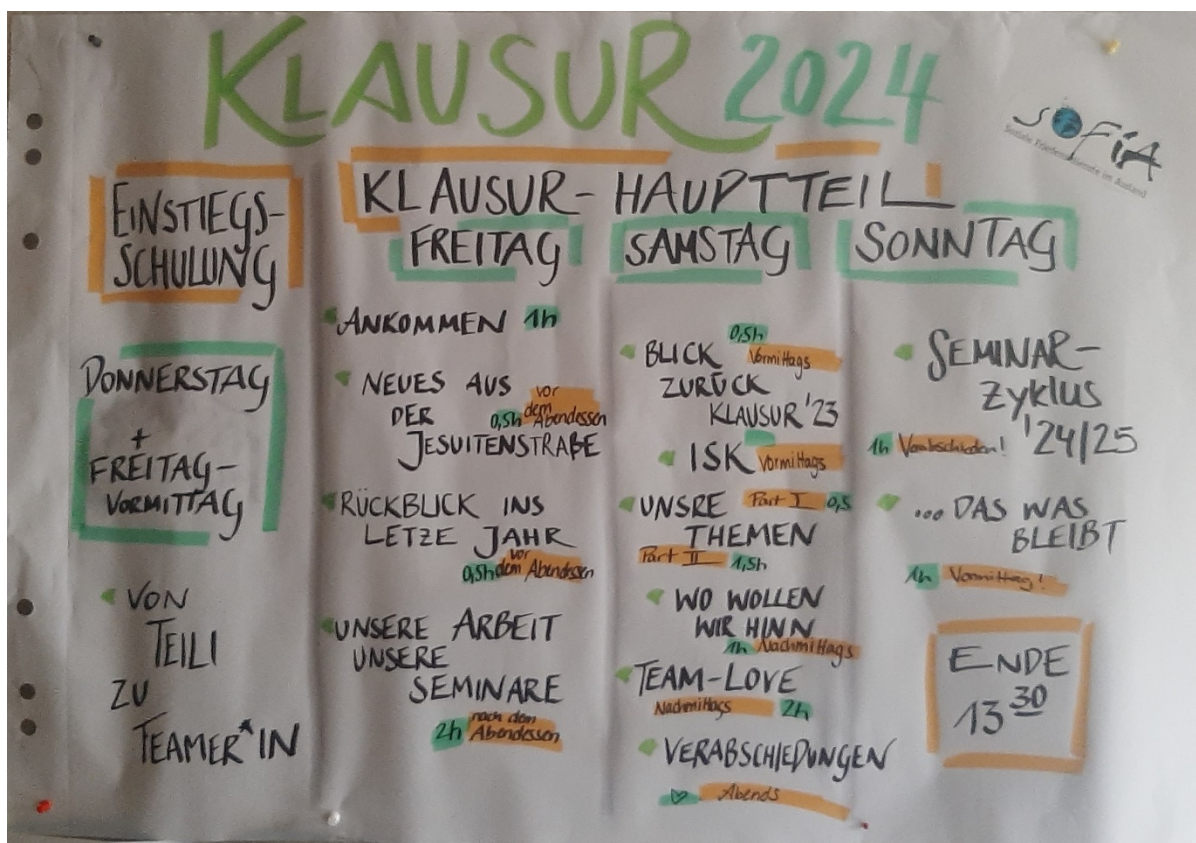 KLAUSUR 2024
SOFiA
Soziale Friedensdienste im Ausland
EINSTIEGS-
SCHULUNG
DONNERSTAG
+
FREITAG-
VORMITTAG
VON
TEILI
ZU
TEAMER*IN
KLAUSUR-HAUPTTEIL
FREITAG
ANKOMMEN 1h
NEUES AUS
DER
JESUITENSTRAßE
0,5h vor
dem Abendessen
RÜCKBLICK INS
LETZE JAHR
0,5h vor
dem Abendessen
UNSERE ARBEIT
UNSERE
SEMINARE
2h nach dem
Abendessen
SAMSTAG
0,5h
BLICK Vormittags
ZURÜCK
KLAUSUR '23
ISK Vormittags
UNSRE Part I 0,5
THEMEN
Part II 1,5h
WO WOLLEN
WIR HINN
1h Nachmittags
TEAM-LOVE
Nachmittags 2h
VERABSCHIEDUNGEN
Abends
SONNTAG
SEMINAR-
ZYKLUS
'24/25
1h
...DAS WAS
BLEIBT
1h Vormittag!
ENDE
13 30